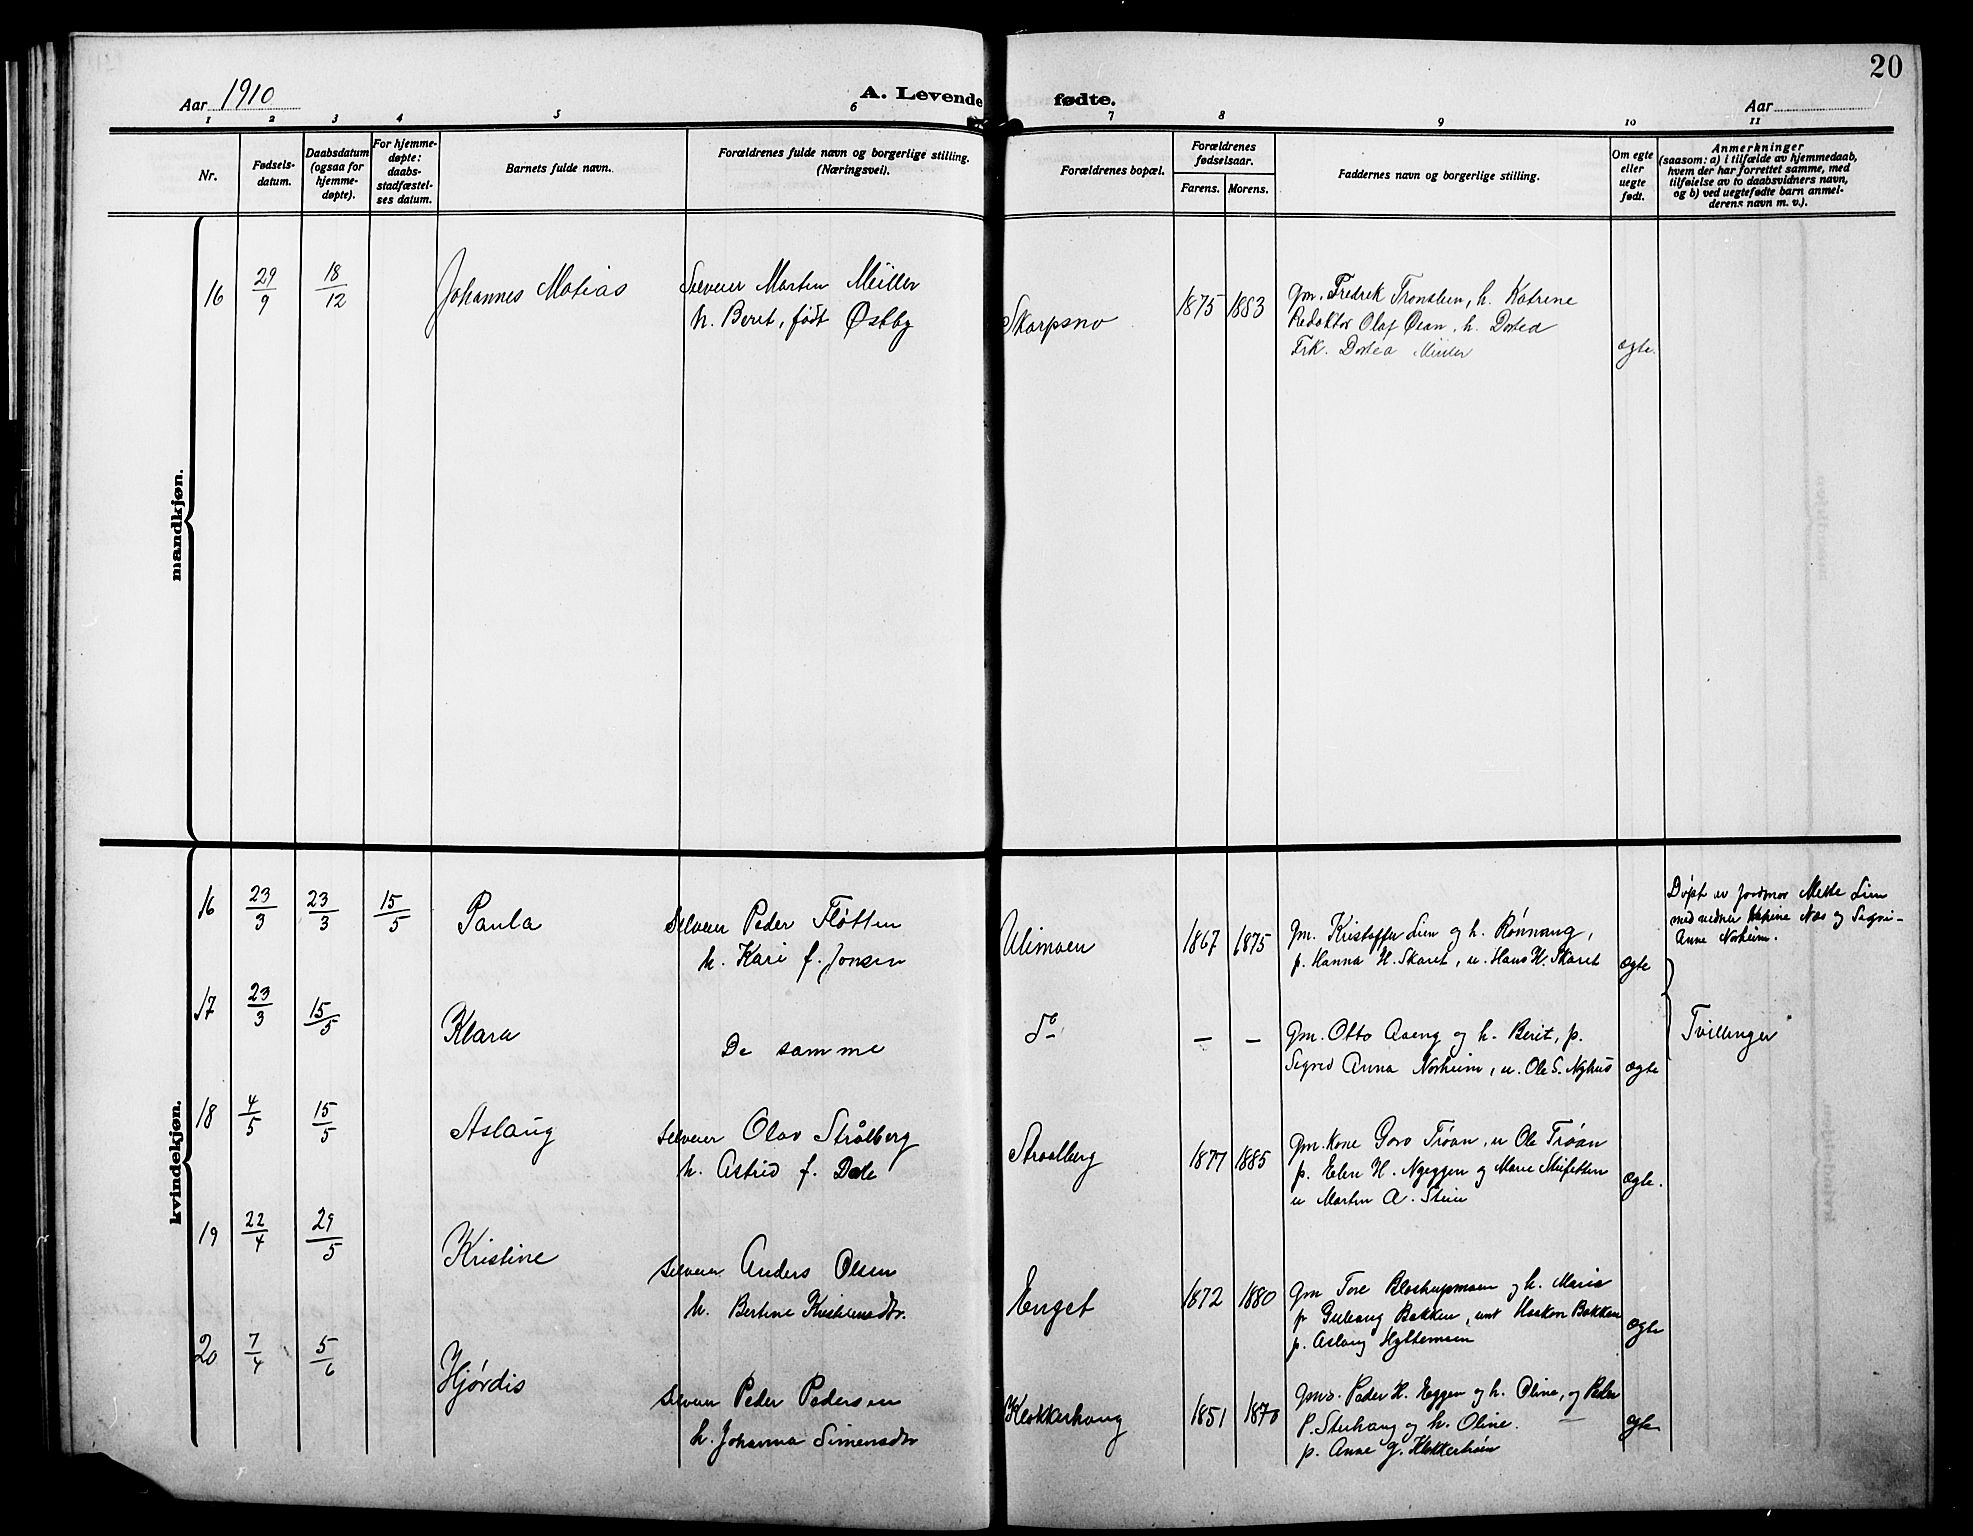 20
Aar 1910
A. Levende fødte.
Aar
1 2 3 4 5 6 7 8 9 10 11
Nr.
Fødsels-
datum.
Daabsdatum
(ogsaa for
hjemme-
døpte).
For hjemme-
døpte:
daabs-
stadfæstel-
ses datum.
Barnets fulde navn.
Forældrenes fulde navn og borgerlige stilling.
(Næringsvei).
Forældrenes bopæl.
Forældrenes
fødselsaar.
Farens. Morens.
Faddernes navn og borgerlige stilling.
Om egte
eller
uegte
født.
Anmerkninger
(saasom: a) i tilfælde av hjemmedaab,
hvem der har forrettet samme, med
tilføielse av to daabsvidners navn,
og b) ved uegtefødte barn anmel-
derens navn m. v.).
mandkjøn.
16 29/9 18/12 Johannes Matias
Selveier Marten Müller
h. Beret, født Østby
Skarpsno 1875 1883
Gm. Fredrek Tronslien, h. Katrine
Redaktør Olaf Øian, h. Dortea
Frk. Dortea Müller
ægte.
kvindekjøn.
16 23/3 23/3 15/5 Paula
Selveier Peder Fløtten
h. Kari f. Jonsen
Ulimoen 1867 1875
Gm. Kristoffer Lien og h. Rønnaug,
p. Hanna H. Skaret, u. Hans H. Skaret
ægte
Døpt av Jordmor Mette Lien
med vidner Næs og
Anne Norheim.
17 23/3 15/5 Klara
De samme
do — —
Gm. Otto Aseng og h. Berit, p.
Sigrid Anna Norheim, u. Ole S. Nyhus
ægte
Tvillinger
18 4/5 15/5 Aslaug
Selveier Olav Strålberg
h. Astrid f. Dale
Straalberg 1877 1885
Gm. Kone Goro Trøan, u Ole Trøan
p. Elen H. Nyeggen og Marie
u Marten A. Stein
ægte.
19 22/4 29/5 Kristine
Selveier Anders Olsen
h. Bertine Kristensdtr.
Enget 1872 1880
Gm Tore og h. Marie
p Gulaug Bakken, unt Haakon Bakken
p. Aslaug Hyttemoen
ægte
20 7/4 5/6 Hjørdis
Selveier Peder Pedersen
h. Johanna Simensdtr
Klokkerhaug 1851 1870
Gms. Peder H. Eggen og h. Oline, og Peder
P. Sterhaug og h. Oline.
p. Anne G.
ægte